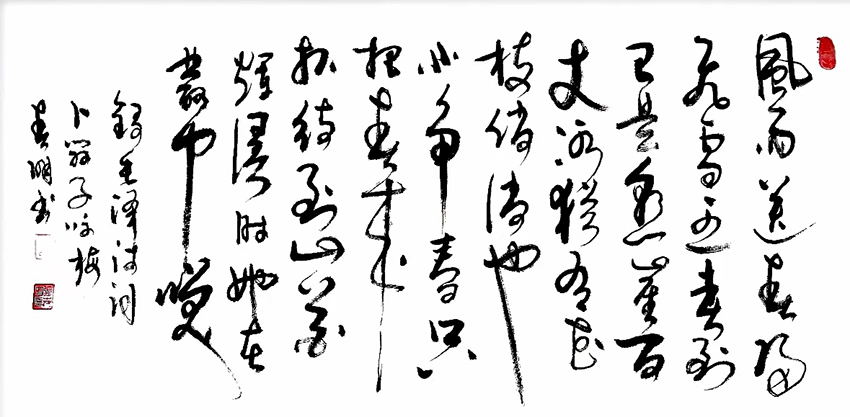 風雨送春歸
飛雪迎春到
已是懸崖百
丈冰猶有花
枝俏俏也
不爭春只
把春来
报待到山花
爛漫時她在
叢中笑
錄毛澤东詞
卜算子咏梅
春书